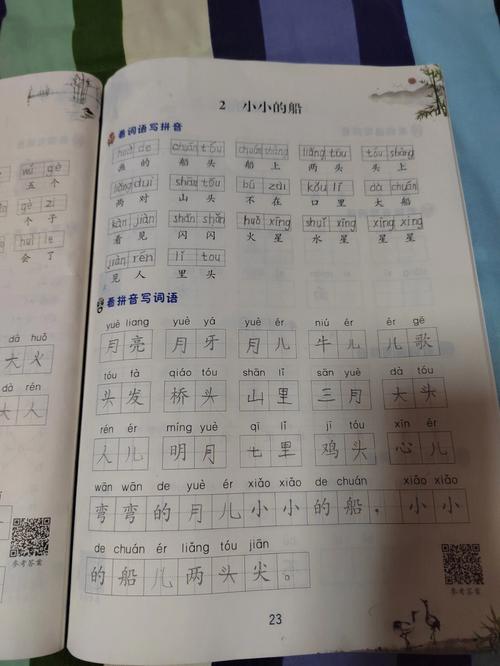 wǔ gè
五 个
gè zi
个 子
huì le
会 了
dà huǒ
大 火
dà rén
大 人
参考答案
2 小小的船
看词语写拼音
huà de chuán tóu chuán shàng liǎng tóu tóu shàng
画 的 船 头 船 上 两 头 头 上
liǎng duì shān tóu bú zài kǒu lǐ dà chuán
两 对 山 头 不 在 口 里 大 船
kàn jiàn shǎn shǎn huǒ xīng shuǐ xīng xīng xīng
看 见 闪 闪 火 星 水 星 星 星
jiàn rén lǐ tou
见 人 里 头
看拼音写词语
yuè liang yuè yá yuè ér niú ér ér gē
月 亮 月 牙 月 儿 牛 儿 儿 歌
tóu fà qiáo tóu shān lǐ sān yuè dà tóu
头 发 桥 头 山 里 三 月 大 头
rén ér míng yuè qī lǐ jī tóu xīn ér
人 儿 明 月 七 里 鸡 头 心 儿
wān wān de yuè ér xiǎo xiǎo de chuán xiǎo xiǎo
弯 弯 的 月 儿 小 小 的 船 , 小 小
de chuán ér liǎng tóu jiān
的 船 儿 两 头 尖 。
参考答案
23